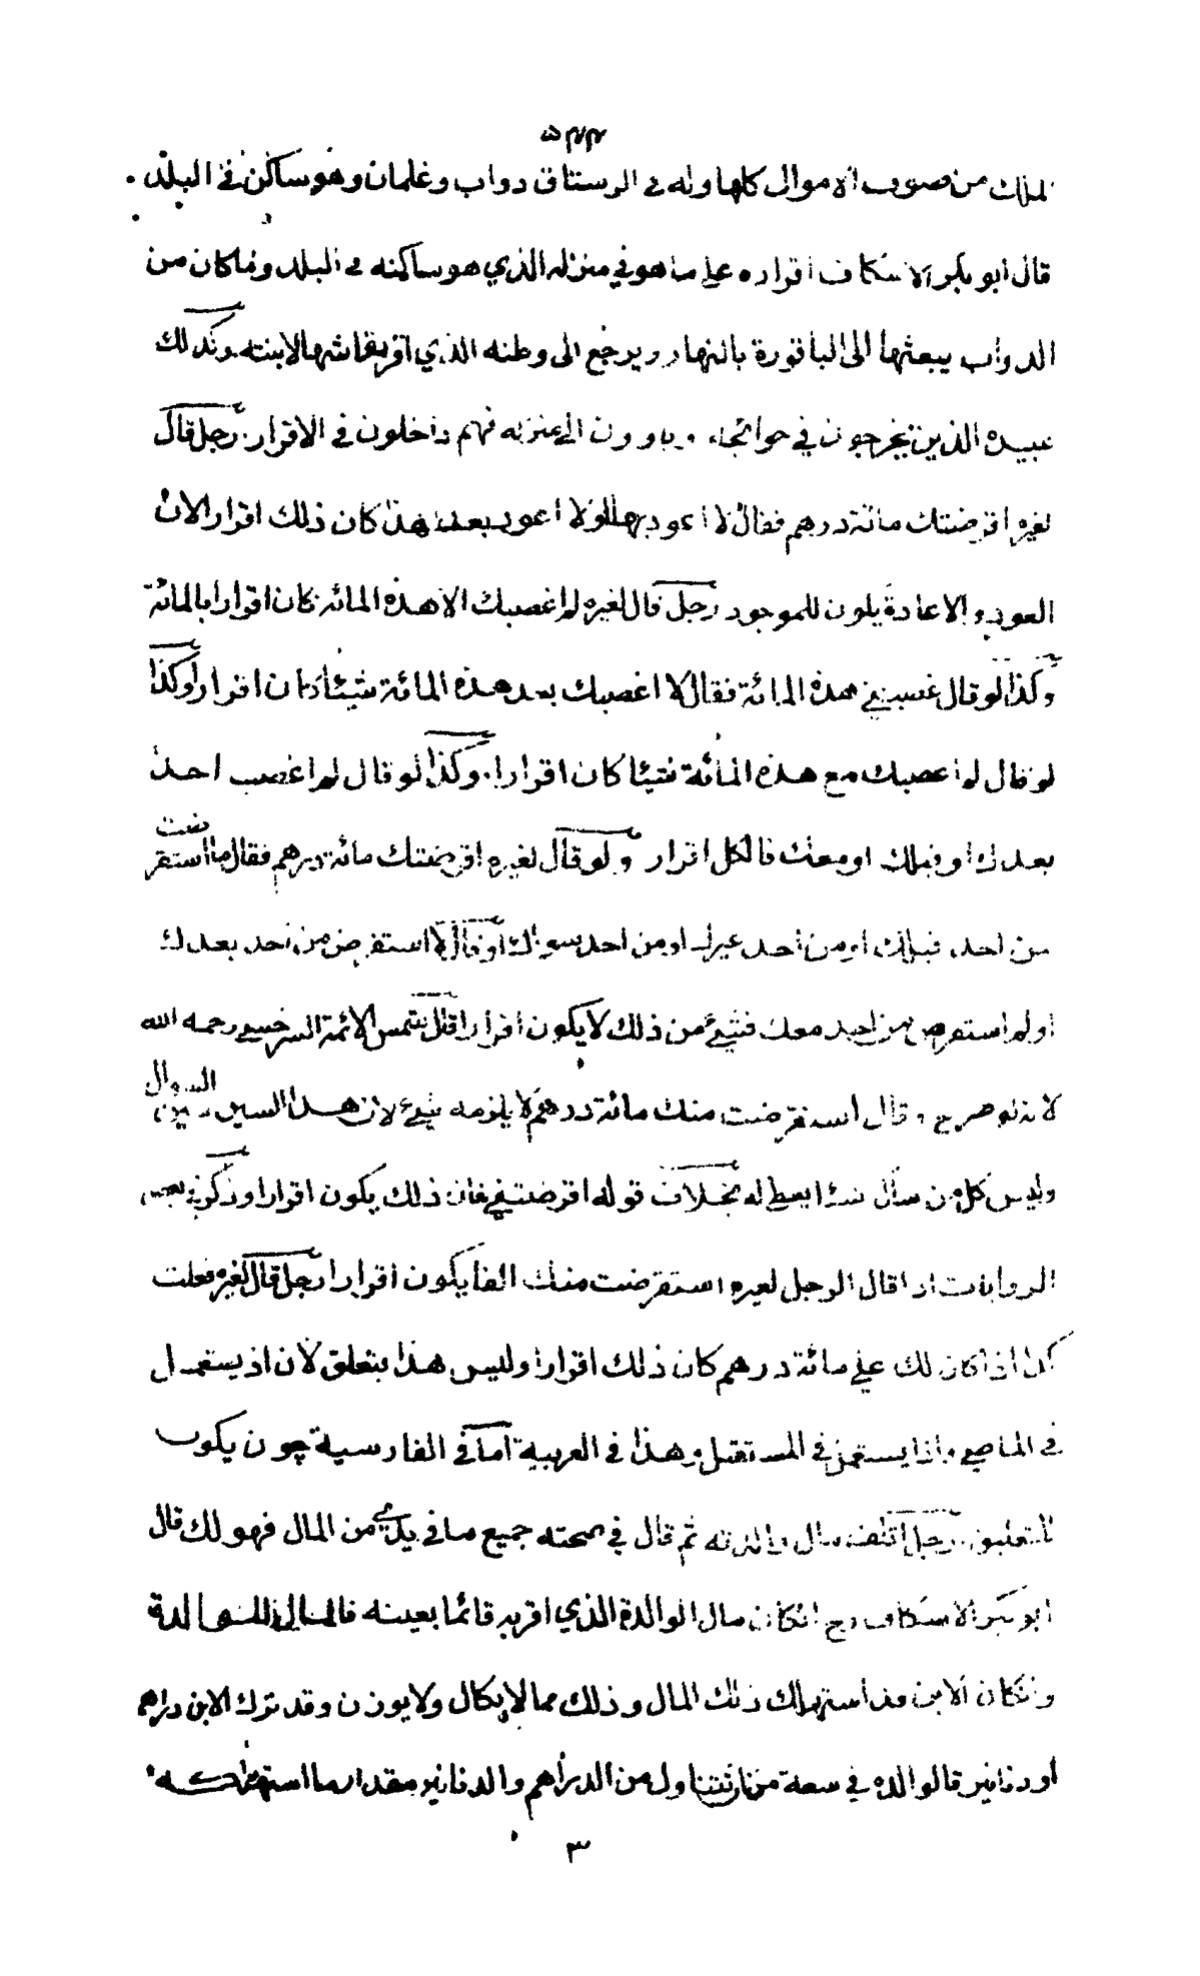 ٥٣٣
الملاك من صنوف الاموال كلها وله فى الرستاق دواب وغلمان وهو ساكن فى البلد
قال ابو بكر الاسكاف اقراره على ما هو فى منزله الذي هو ساكنه فى البلد وما كان من
الدواب يبعثها الى الباقورة بالنهار ويرجع الى وطنه الذي اقر بقماشها لابنته وكذلك
عبيده الذين يخرجون في حوائجه وياوون الى منزله فهم داخلون فى الاقرار رجل قال
لغيره اقرضتك مائة درهم فقال لا اعود بها او لا اعود بعد هذا كان ذلك اقرار لان
العود والاعادة يكون للموجود رجل قال لغيره لم اغصبك الا هذه المائة كان اقرارا بالمائة
وكذا لو قال غصبتني هذه المائة فقال لا اغصبك بعد هذه المائة شيئا كان اقرارا وكذا
لو قال لم اغصبك مع هذه المائة شيئا كان اقرارا وكذا لو قال لم اغصب احدا
بعدك او قبلك او معك فالكل اقرار ولو قال لغيره اقرضتك مائة درهم فقال ما استقرضت
من احد قبلك او من احد غيرك او من احد سواك او قال لا استقرض من احد بعدك
او لم استقرض من احد معك فشيئ من ذلك لا يكون اقرارا قال شمس الائمة السرخسي رحمه الله
لانه لو صرح وقال استقرضت منك مائة درهم لا يلزمه شيئ لان هذا السين سين السوال
وليس كل من سأل شيئا يعطى له بخلاف قوله اقرضتني فان ذلك يكون اقرارا وذكر في بعض
الروايات اذا قال الرجل لغيره استقرضت منك الفا يكون اقرارا رجل قال لغيره فعلت
كذا اذ كان لك علي مائة درهم كان ذلك اقرارا وليس هذا بتعلق لان اذ يستعمل
فى الماضي واذا يستعمل في المستقبل وهذا فى العربية اما فى الفارسية چون يكون
للتعليق رجل اتلف مال والدته ثم قال في صحته جميع ما في يدي من المال فهو لك قال
ابو بكر الاسكاف رح ان كان مال الوالدة الذي اقر به قائما بعينه فالمال للوالدة
وان كان الابن قد استهلك ذلك المال وذلك مما لا يكال ولا يوزن وقد ترك الابن دراهم
او دنانير فالوالدة في سعة من ان تتناول من الدراهم والدنانير مقدار ما استهلكه
٣